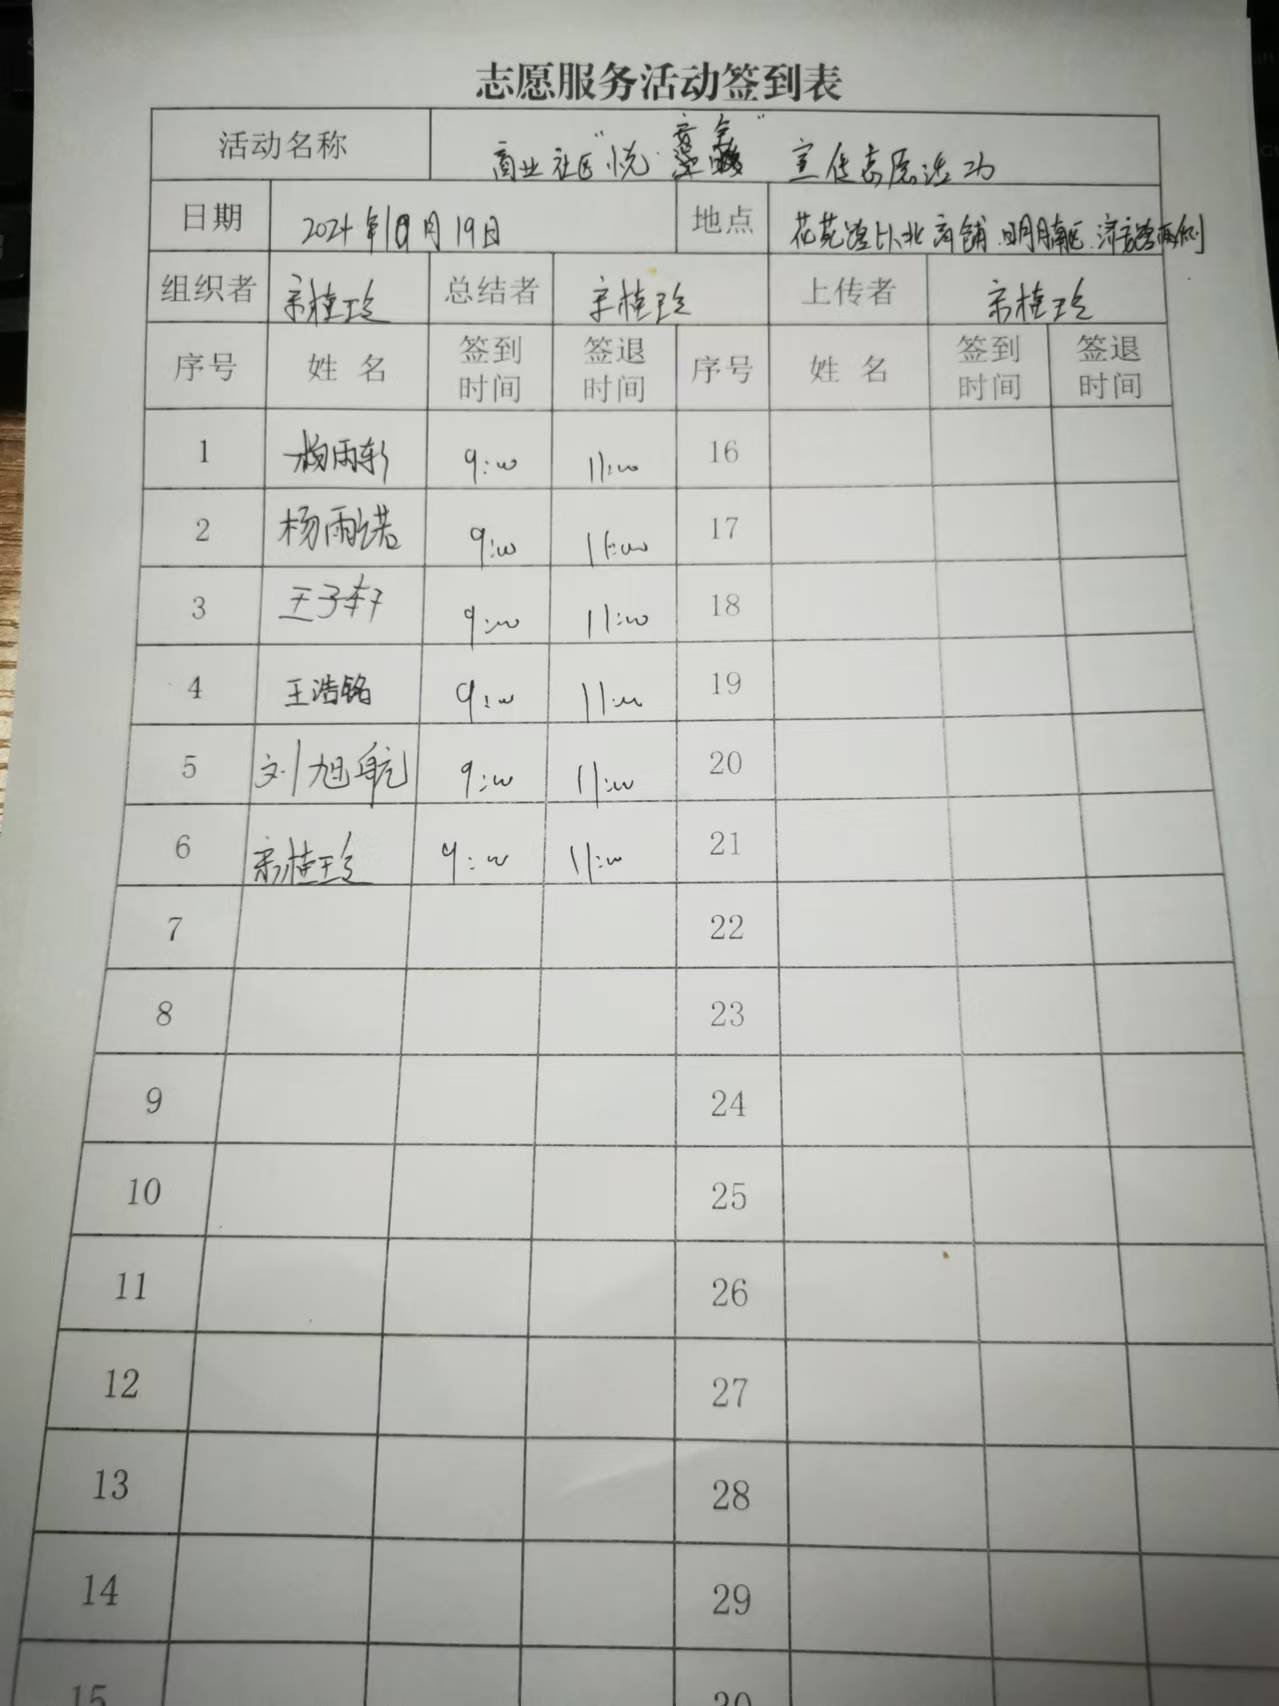 志愿服务活动签到表
活动名称 商业社区"悦 安全" 宣传志愿活动
日期 2024年10月19日 地点 花苑路以北商铺 明月南区 济 路两侧
组织者 宋桂玲 总结者 宋桂玲 上传者 宋桂玲
序号 姓名 签到时间 签退时间 序号 姓名 签到时间 签退时间
1 杨雨轩 9:00 11:00 16
2 杨雨诺 9:00 11:00 17
3 王子轩 9:00 11:00 18
4 王浩铭 9:00 11:00 19
5 刘旭航 9:00 11:00 20
6 宋桂玲 9:00 11:00 21
7 22
8 23
9 24
10 25
11 26
12 27
13 28
14 29
15 30